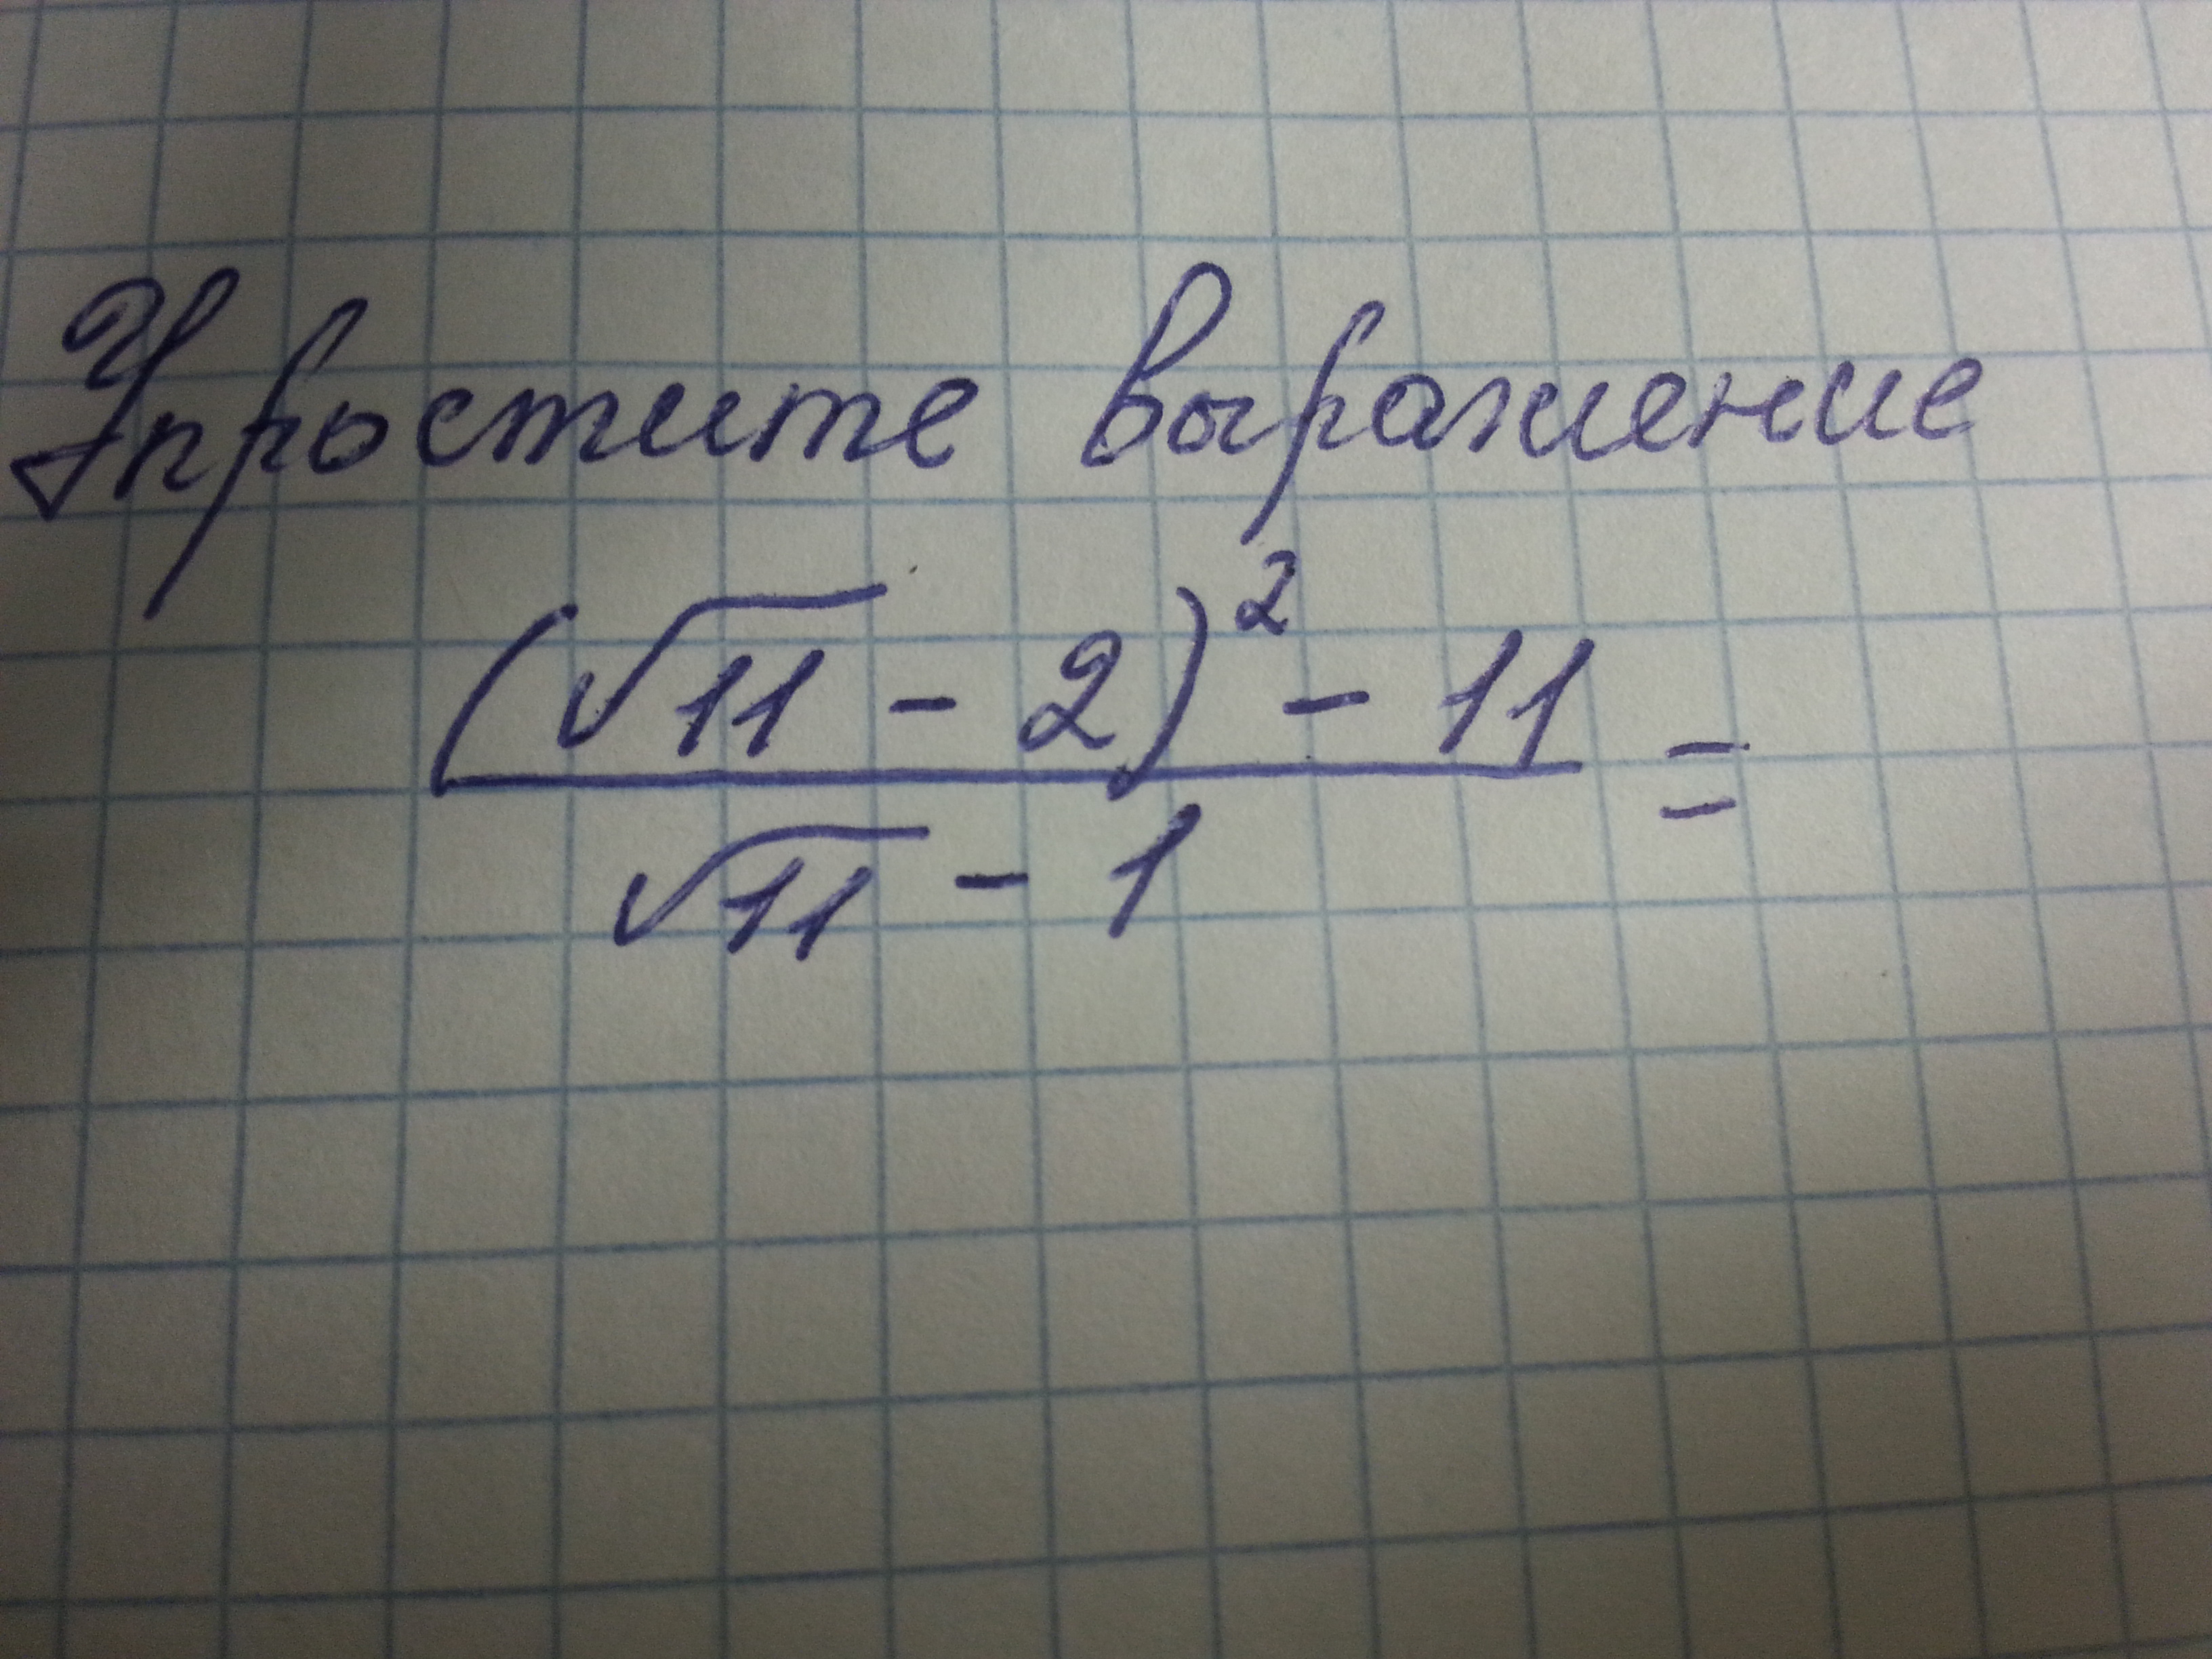 Упростите выражение
(√11 - 2)² - 11 =
√11 - 1